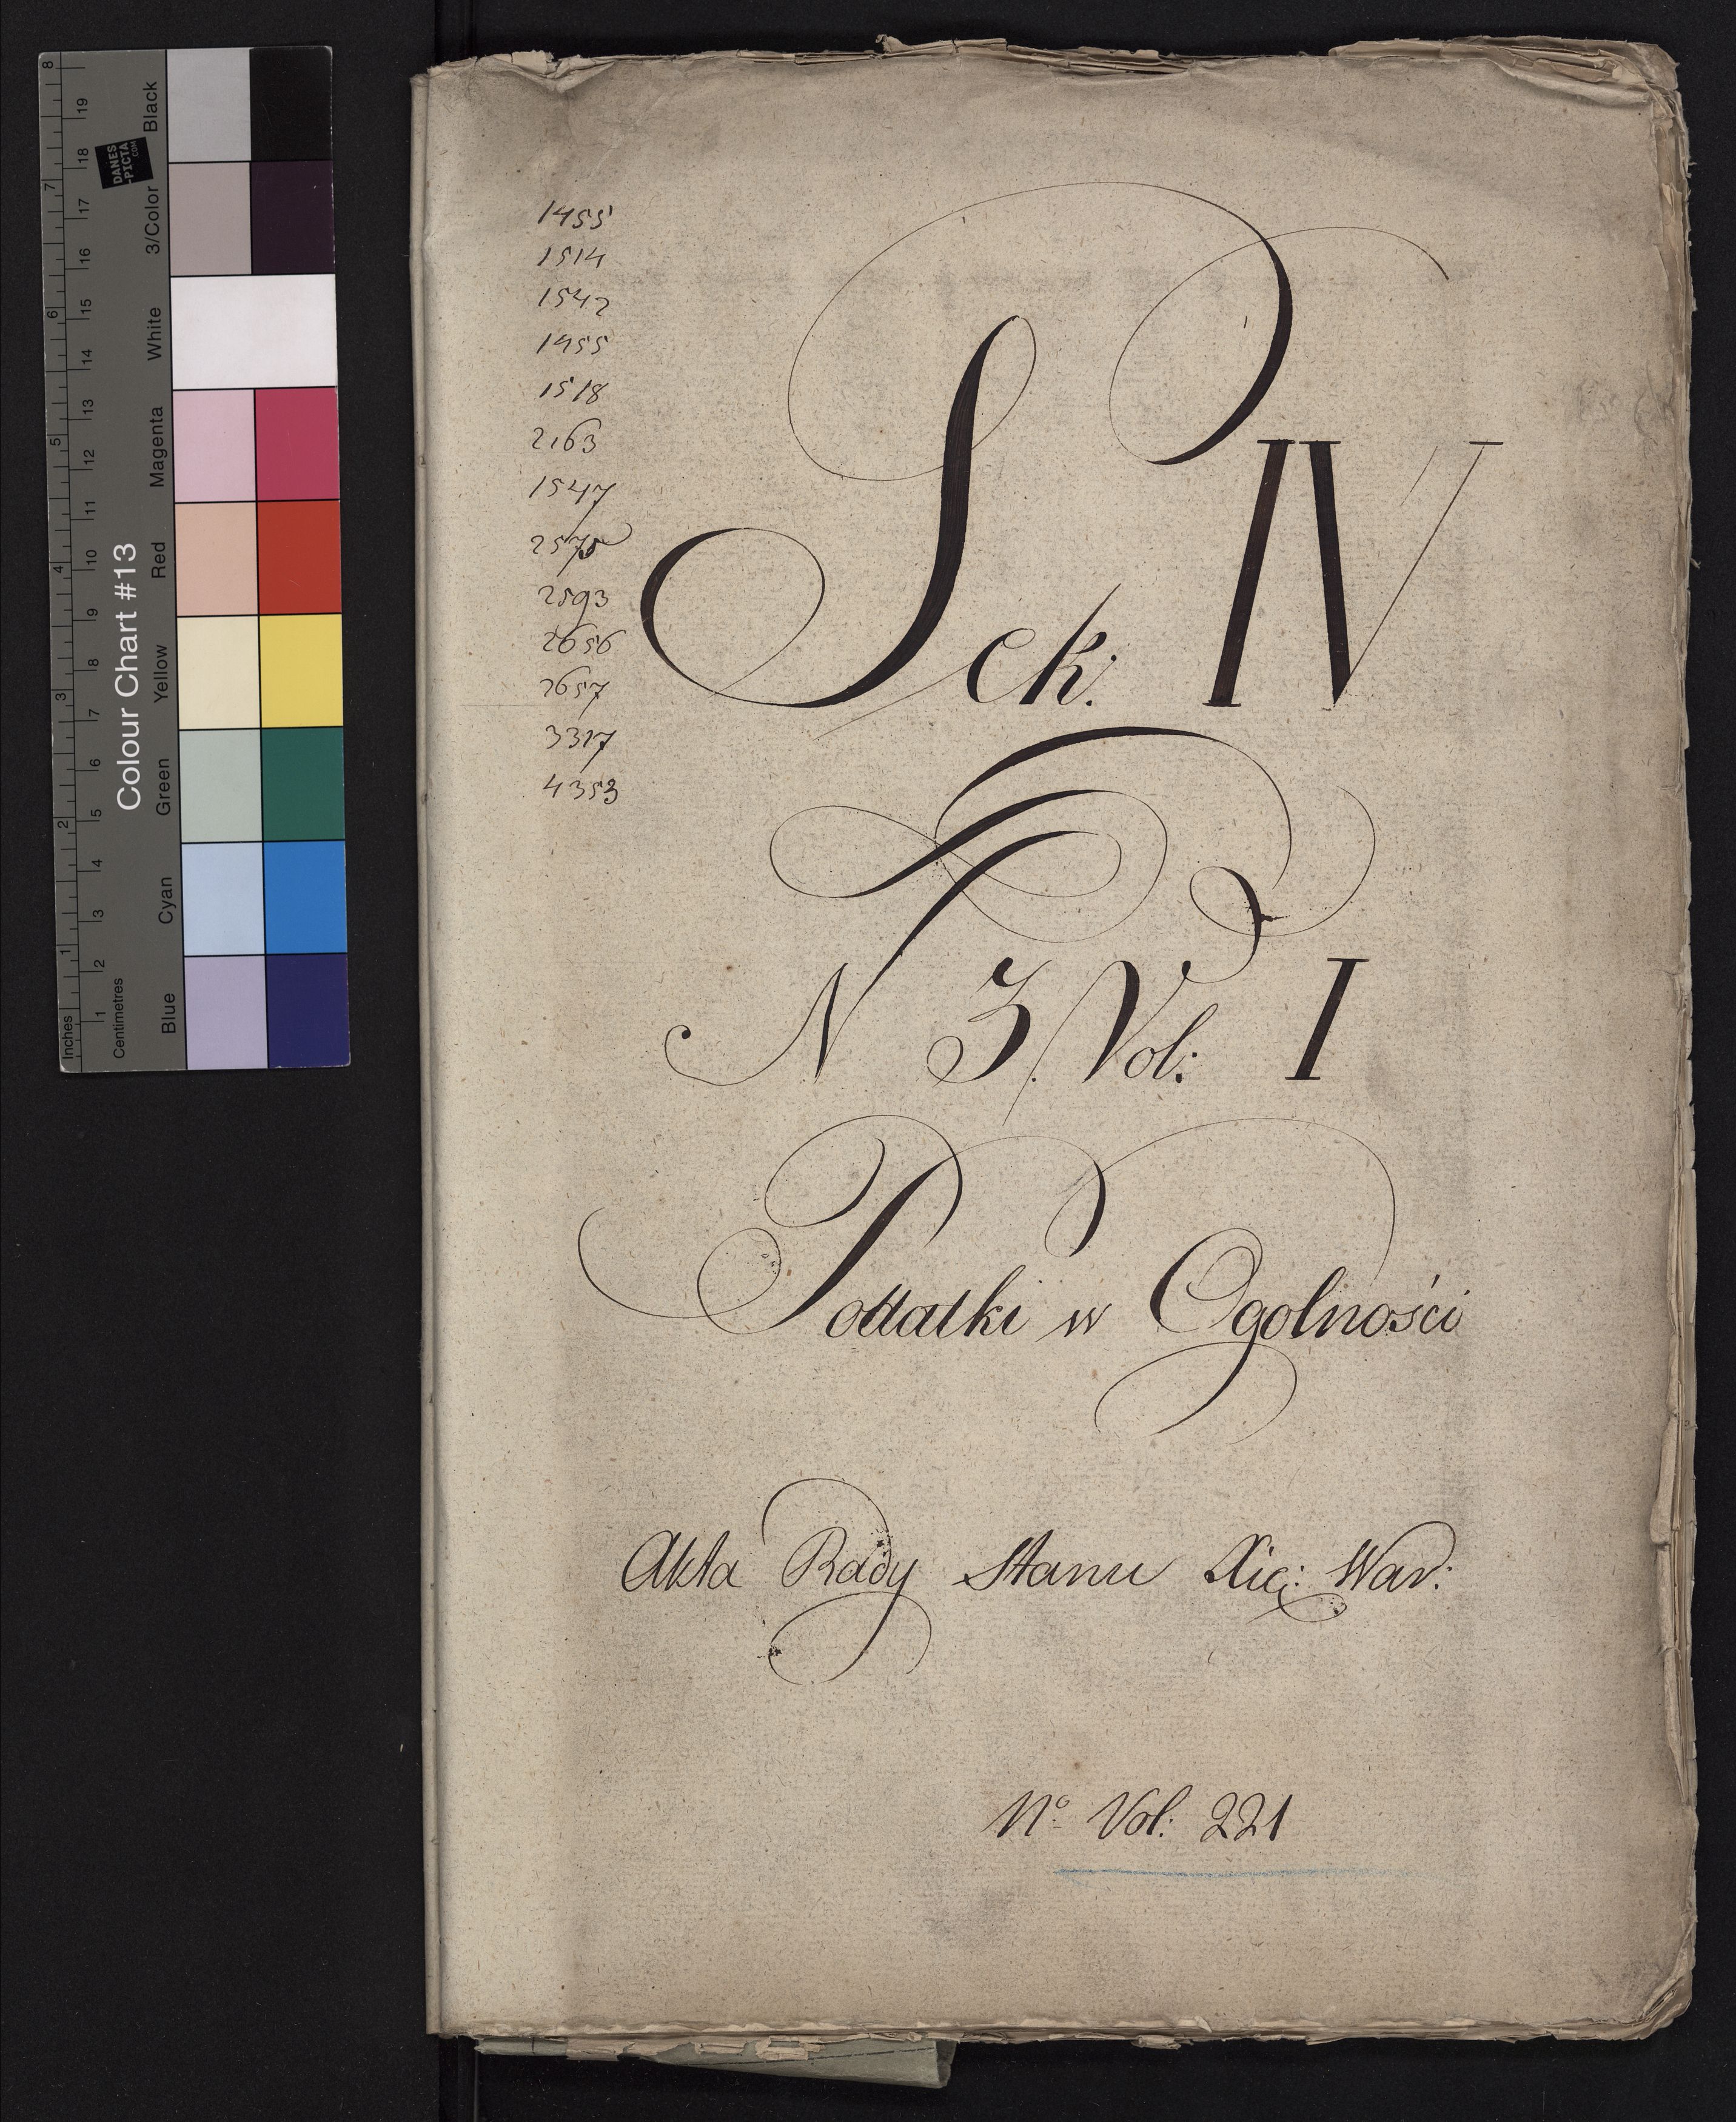 1455
1514
1542
1455
1518
2163
1547
2593
2656
2657
3317
4353
Sek: IV
N 3. Vol: I
Podatki w Ogolności
Akta Rady Stanu Xię: War:
No Vol: 221
Colour Chart #13
Blue Cyan Green Yellow Red Magenta White 3/Color Black
Inches 1 2 3 4 5 6 7 8
Centimetres 1 2 3 4 5 6 7 8 9 10 11 12 13 14 15 16 17 18 19
DANES
-PICTA
.COM